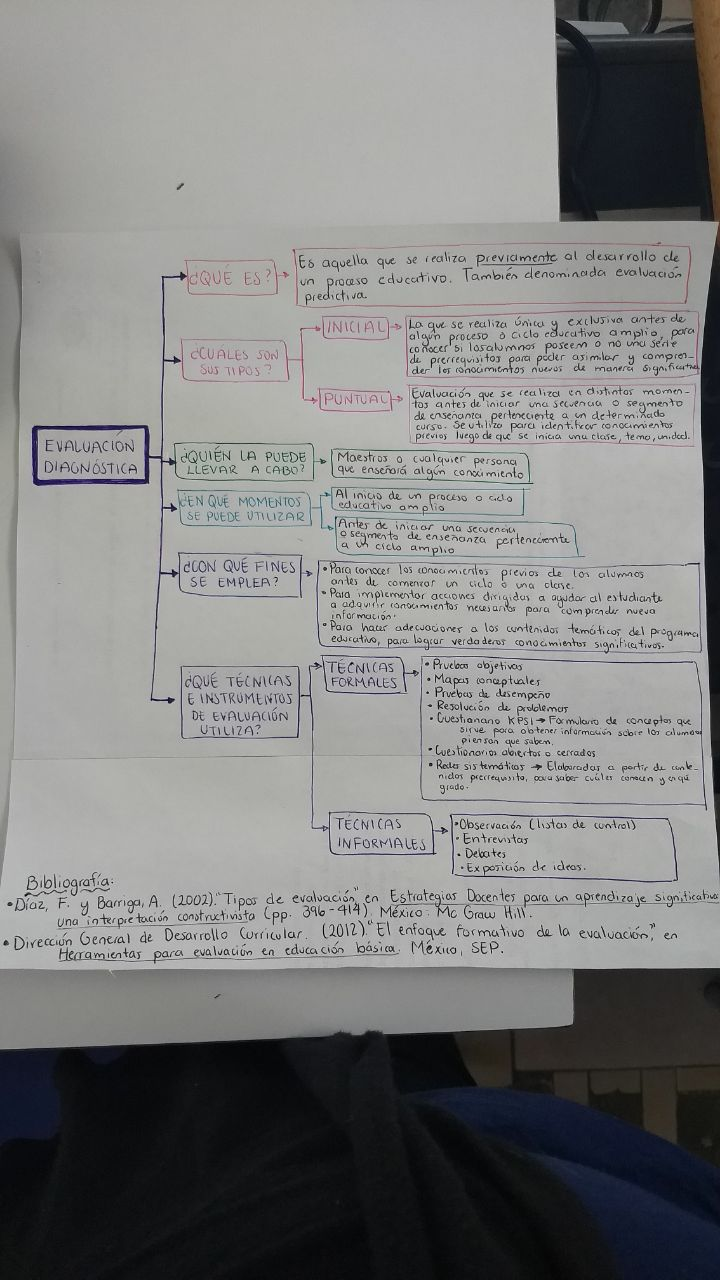 EVALUACIÓN
DIAGNÓSTICA
¿QUÉ ES?
Es aquella que se realiza previamente al desarrollo de
un proceso educativo. También denominada evaluación
predictiva.
¿CUALES SON
SUS TIPOS?
INICIAL
La que se realiza única y exclusiva antes de
algún proceso o ciclo educativo amplio, para
conocer si los alumnos poseem o no una serie
de prerrequisitos para poder asimilar y compren-
der los conocimientos nuevos de manera significativa
PUNTUAL
Evaluación que se realiza en distintos momen-
tos antes de iniciar una secuencia o segmento
de enseñanza perteneciente a un determinado
curso. Se utiliza para identificar conocimientos
previos luego de que se inicia una clase, tema, unidad.
¿QUIÉN LA PUEDE
LLEVAR A CABO?
Maestros o cualquier persona
que enseñará algún conocimiento
¿EN QUÉ MOMENTOS
SE PUEDE UTILIZAR
Al inicio de un proceso o ciclo
educativo amplio
Antes de iniciar una secuencia
o segmento de enseñanza perteneciente
a un ciclo amplio
¿CON QUÉ FINES
SE EMPLEA?
• Para conocer los conocimientos previos de los alumnos
antes de comenzar un ciclo o una clase.
• Para implementar acciones dirigidas a ayudar al estudiante
a adquirir conocimientos necesarios para comprender nueva
información.
• Para hacer adecuaciones a los contenidos temáticos del programa
educativo, para lograr verdaderos conocimientos significativos.
¿QUÉ TÉCNICAS
E INSTRUMENTOS
DE EVALUACIÓN
UTILIZA?
TÉCNICAS
FORMALES
• Pruebas objetivas
• Mapas conceptuales
• Pruebas de desempeño
• Resolución de problemas
• Cuestionario KPSI → Formulario de conceptos que
sirve para obtener información sobre los alumnos
piensan que saben.
• Cuestionarios abiertos o cerrados
• Redes sistemáticas → Elaboradas a partir de conte-
nidos prerrequisito, para saber cuáles conocen y en qué
grado.
TÉCNICAS
INFORMALES
• Observación (listas de control)
• Entrevistas
• Debates
• Exposición de ideas.
Bibliografía:
• Díaz, F. y Barriga, A. (2002). "Tipos de evaluación" en Estrategias Docentes para un aprendizaje significativo
una interpretación constructivista (pp. 396-414). México: Mc Graw Hill.
• Dirección General de Desarrollo Curricular. (2012). "El enfoque formativo de la evaluación," en
Herramientas para evaluación en educación básica. México, SEP.